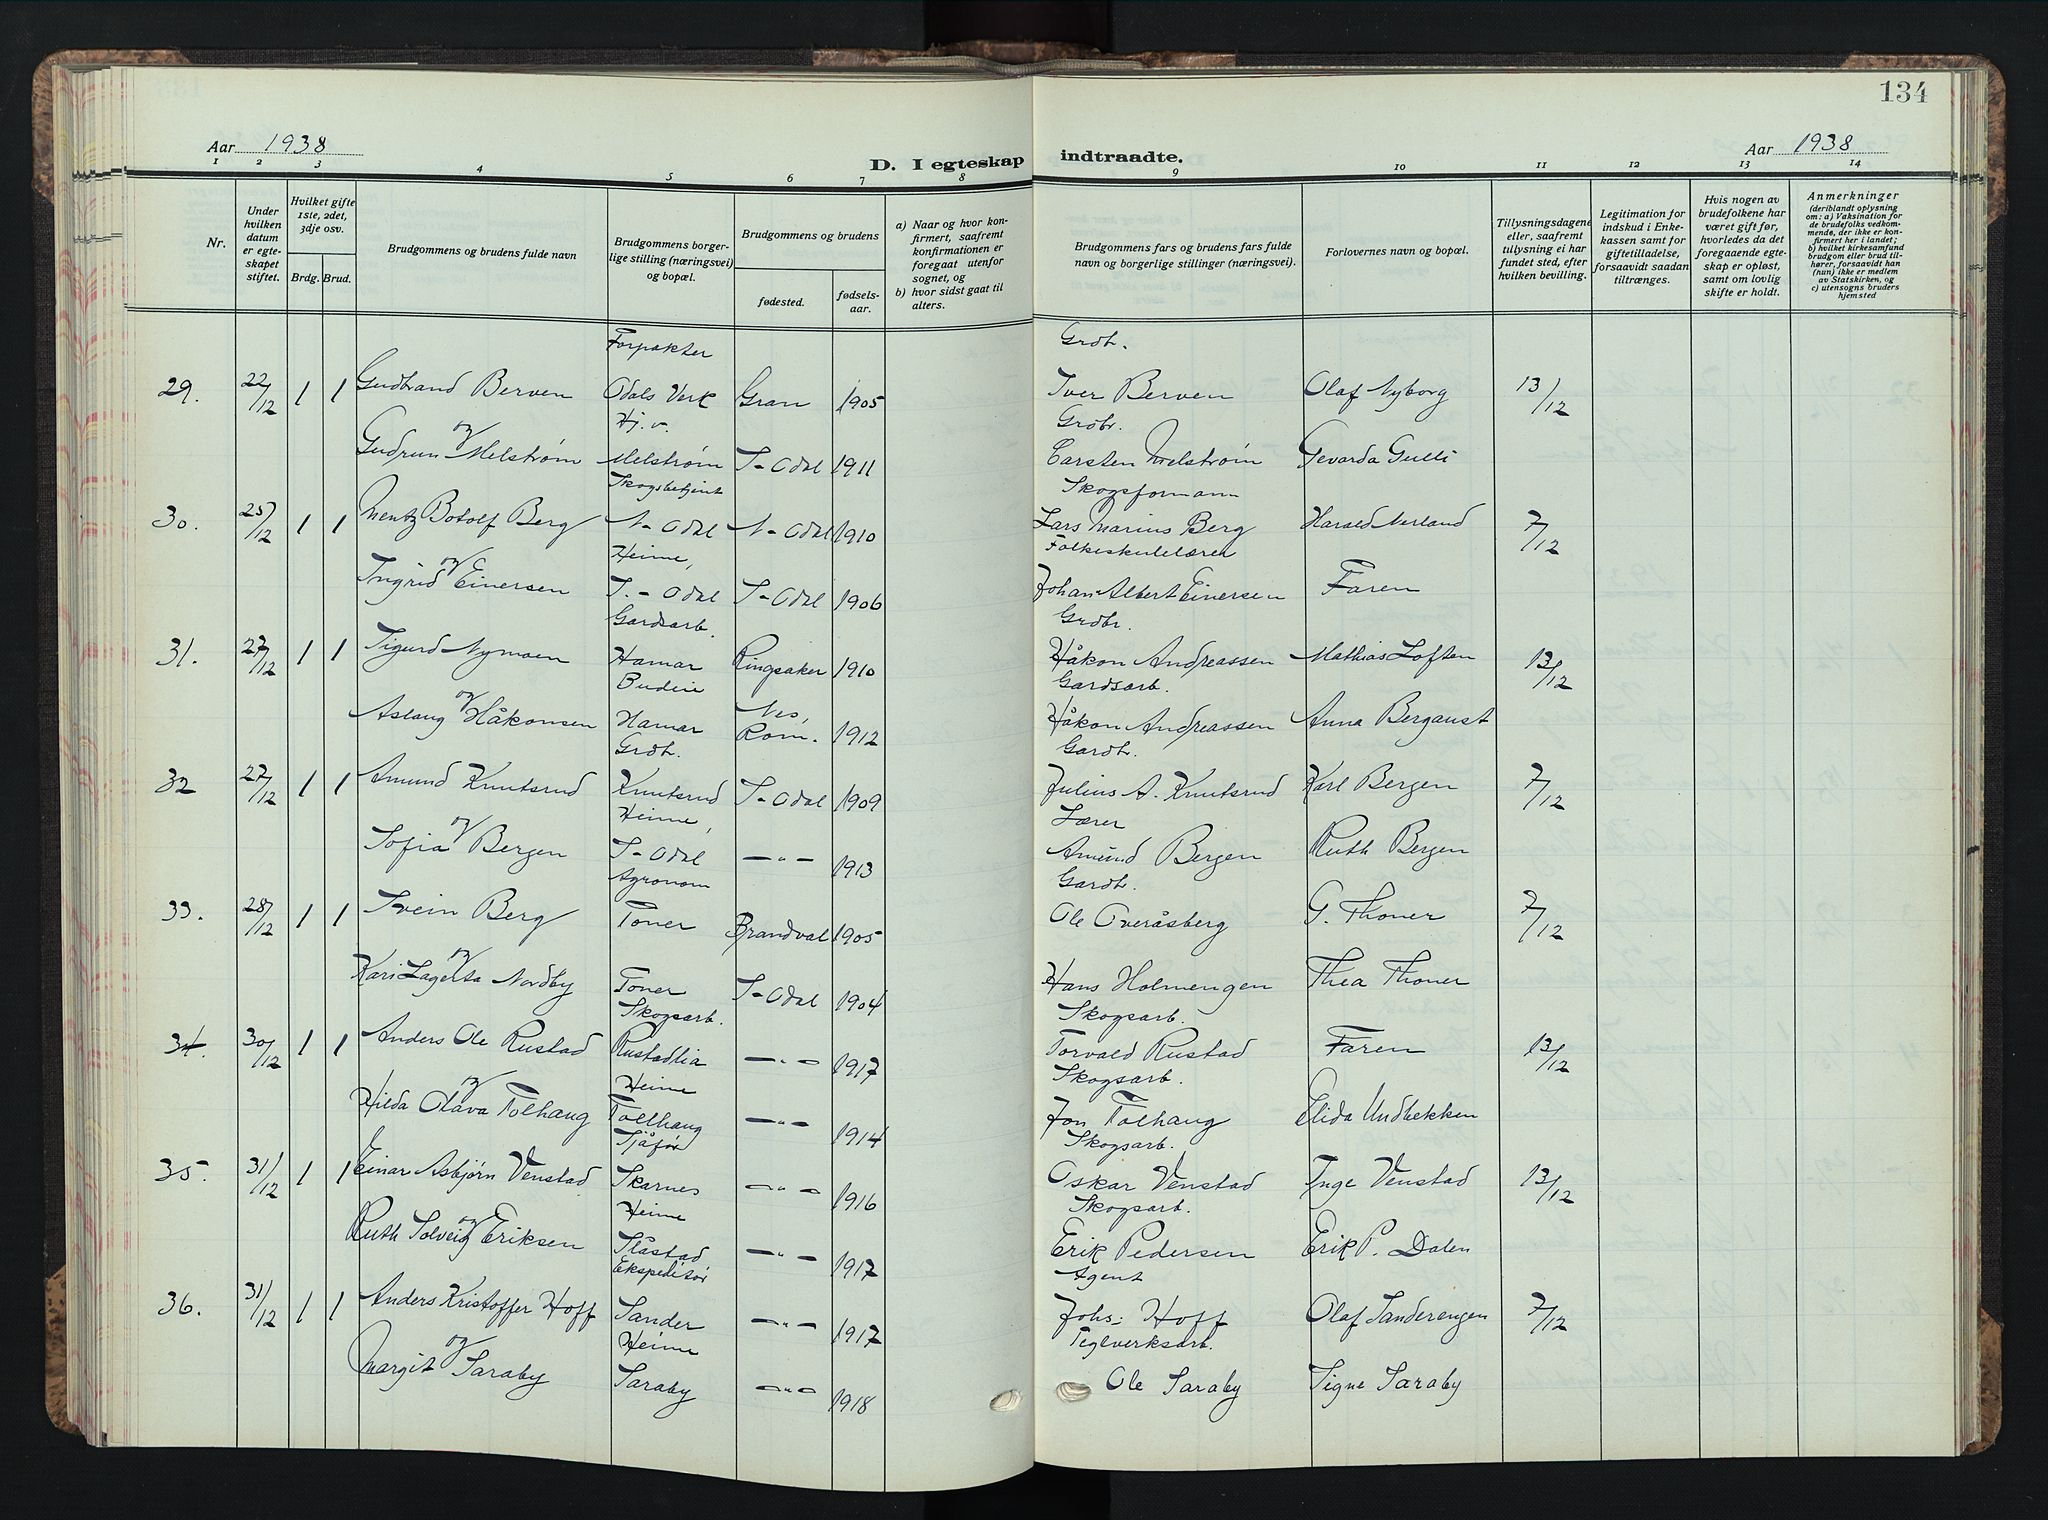 134
Aar 1938
D. I egteskap indtraadte.
Aar 1938
1 2 3 4 5 6 7 8 9 10 11 12 13 14
Nr.
Under hvilken datum er egteskapet stiftet.
Hvilket gifte 1ste, 2det, 3dje osv.
Brdg. Brud.
Brudgommens og brudens fulde navn
Brudgommens borgerlige stilling (næringsvei) og bopæl.
Brudgommens og brudens
fødested.
fødselsaar.
a) Naar og hvor konfirmert, saafremt konfirmationen er foregaat utenfor sognet, og
b) hvor sidst gaat til alters.
Brudgommens fars og brudens fars fulde navn og borgerlige stillinger (næringsvei).
Forlovernes navn og bopæl.
Tillysningsdagene eller, saafremt tillysning ei har fundet sted, efter hvilken bevilling.
Legitimation for indskud i Enkekassen samt for giftetilladelse, forsaavidt saadan tiltrænges.
Hvis nogen av brudefolkene har været gift før, hvorledes da det foregaaende egteskap er opløst, samt om lovlig skifte er holdt.
Anmerkninger (deriblandt oplysning om: a) Vaksination for de brudefolks vedkommende, der ikke er konfirmert her i landet; b) hvilket kirkesamfund brudgom eller brud tilhører, forsaavidt han (hun) ikke er medlem av Statskirken, og c) utensogns bruders hjemsted
Forpakter Grdb.
29. 22/12 1 1 Gudbrand Berven Odals Verk Gran 1905 Iver Berven Olaf Nyborg 13/12
og Hj. v. Grdbr.
Gudrun Melstrøm Melstrøm S-Odal 1911 Carsten Melstrøm Gevarda Gulli
Skogsbetjent Skogsformann
30. 25/12 1 1 Mentz Botolf Berg N-Odal N-Odal 1910 Lars Marius Berg Harald Nerland 7/12
og Heime, Folkeskulelærer
Ingrid E Einersen S.-Odal S-Odal 1906 Johan Albert Einersen Faren
Gardsarb. Grdbr.
31. 27/12 1 1 Sigurd Nymoen Hamar Ringsaker 1910 Håkon Andreassen Mathias Loften 13/12
og Budeie Nes, Gardsarb.
Aslaug Håkonsen Hamar Rom. 1912 Håkon Andreassen Anna Bergaust
Grdb. Gardb.
32 27/12 1 1 Amund Knutsrud Knutsrud S-Odal 1909 Julius A. Knutsrud Karl Bergen 7/12
og Heime, Lærer
Sofia Bergen S-Odal —"— 1913 Amund Bergen Ruth Bergen
Agronom Gardb.
33. 28/12 1 1 Svein Berg Toner Brandval 1905 Ole Overåsberg G. Thoner 7/12
og
Kari Lagerta Nordby Toner S-Odal 1904 Hans Holmengen Thea Thoner
Skogsarb. Skogsarb.
34. 30/12 1 1 Anders Ole Rustad Rustadlia —"— 1917 Torvald Rustad Faren 13/12
og Heime Skogsarb.
Hilda Olava Tolhaug Tollhaug —"— 1914 Jon Tolhaug Elida Undbekken
Sjåfør Skogsarb.
35. 31/12 1 1 Einar Asbjørn Venstad Skarnes —"— 1916 Oskar Venstad Inge Venstad 13/12
og Heime Skogsarb.
Ruth Solveig Eriksen Slåstad —"— 1917 Erik Pedersen Erik P. Dalen
Ekspeditør Agent
36. 31/12 1 1 Anders Kristoffer Hoff Sander —"— 1917 Johs: Hoff Olaf Sanderengen 7/12
og Heime Teglverksarb.
Margit Saraby Saraby —"— 1918 Ole Saraby Signe Saraby